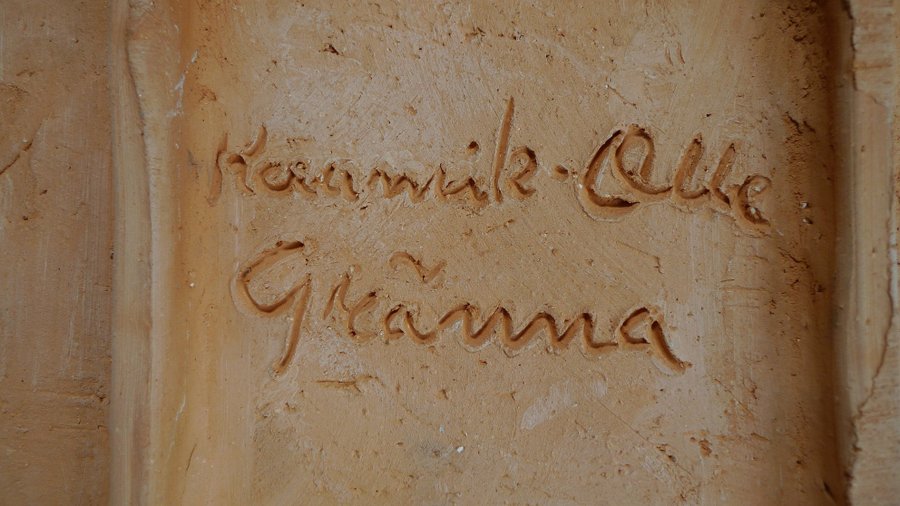 Keramik-Olle
Gränna